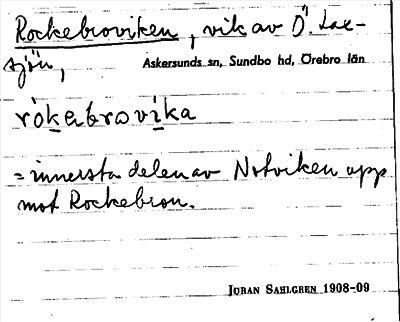 Rockebroviken, vik av Ö. Lax-
sjön,
Askersunds sn, Sundbo hd, Örebro län
ròkebrovika
= innersta delen av Notviken upp
mot Rockebron.
JÖRAN SAHLGREN 1908-09